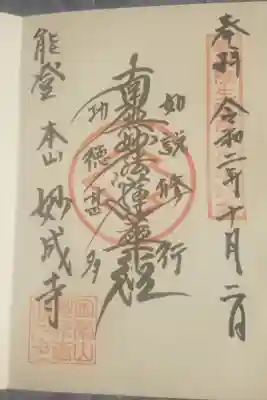 奉拝 令和二年十月二日
如説修行
南無妙法蓮華経
功徳甚多
能登 本山 妙成寺